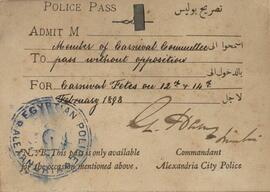 POLICE PASS تصريح بوليس
ADMIT M Member of Carnival Committee اسمحوا الى
To pass without opposition بالدخول الى
For Carnival Fetes on 12th & 14th
February 1898 لاجل
EGYPTIAN POLICE
N.B. This pass is only available Commandant
for the occasion mentioned above. Alexandria City Police